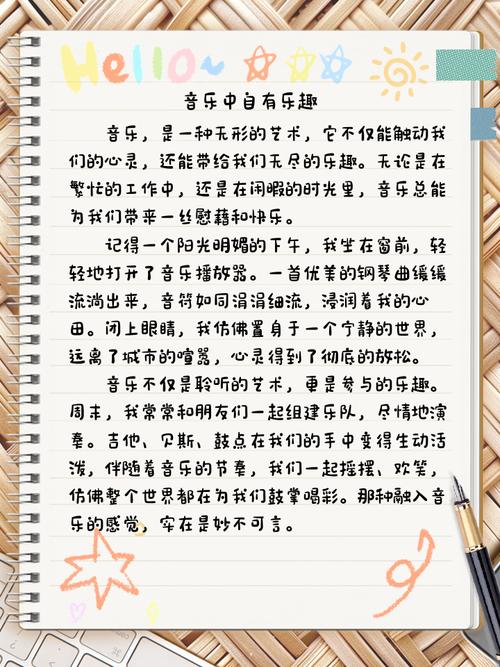 Hello~
音乐中自有乐趣
音乐，是一种无形的艺术，它不仅能触动我
们的心灵，还能带给我们无尽的乐趣。无论是在
繁忙的工作中，还是在闲暇的时光里，音乐总能
为我们带来一丝慰藉和快乐。
记得一个阳光明媚的下午，我坐在窗前，轻
轻地打开了音乐播放器。一首优美的钢琴曲缓缓
流淌出来，音符如同涓涓细流，浸润着我的心
田。闭上眼睛，我仿佛置身于一个宁静的世界，
远离了城市的喧嚣，心灵得到了彻底的放松。
音乐不仅是聆听的艺术，更是参与的乐趣。
周末，我常常和朋友们一起组建乐队，尽情地演
奏。吉他、贝斯、鼓点在我们的手中变得生动活
泼，伴随着音乐的节奏，我们一起摇摆、欢笑，
仿佛整个世界都在为我们鼓掌喝彩。那种融入音
乐的感觉，实在是妙不可言。